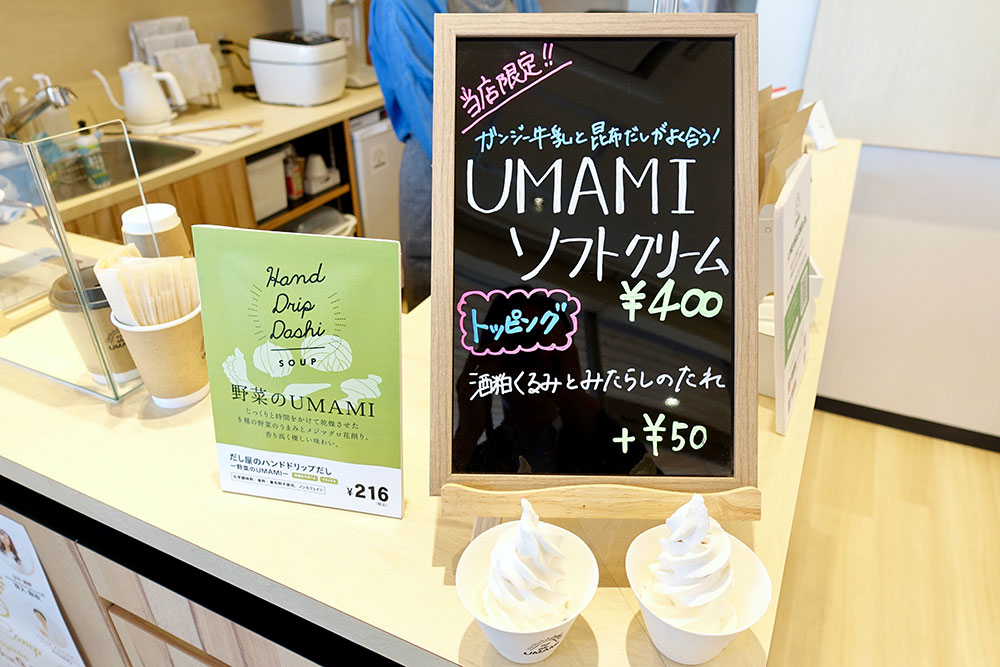 当店限定!!
ガンジー牛乳と昆布だしがよく合う!
UMAMI
ソフトクリーム
¥400
トッピング
酒粕くるみとみたらしのたれ
+¥50
Hand
Drip
Dashi
SOUP
野菜のUMAMI
じっくりと時間をかけて乾燥させた
5種の野菜のうまみとメジマグロ花削り。
香り高く優しい味わい。
だし屋のハンドドリップだし
ー野菜のUMAMIー
¥216
UMAMI
UMAMI